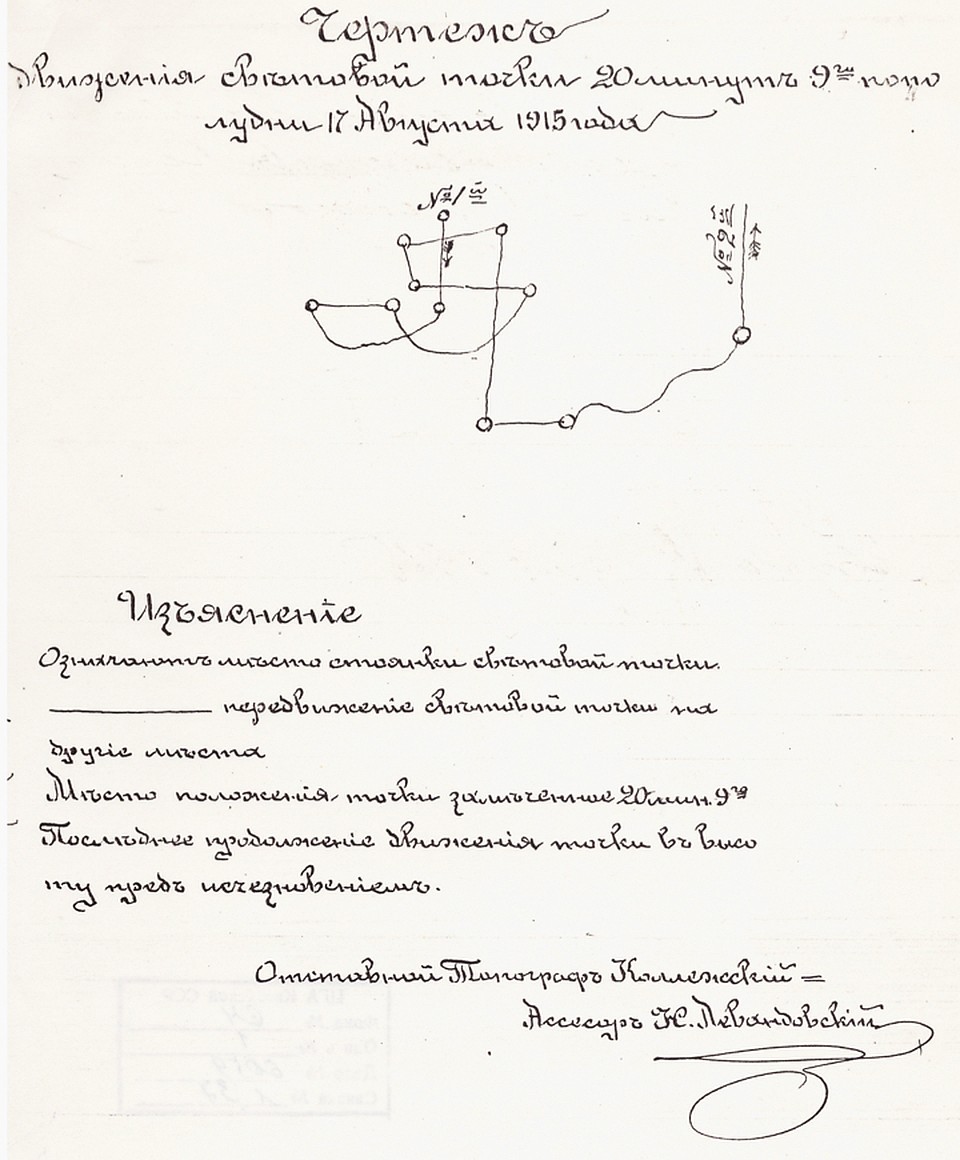 Чертежъ
движенія свѣтовой точки 20 минутъ 9го попо
лудни 17 Августа 1915 года
№ 1й
№ 2й
Изъясненіе
Означаютъ мѣсто стоянки свѣтовой точки.
передвиженіе свѣтовой точки на
другіе мѣста
Мѣсто положенія точки замѣченное 20 мин. 9го
Послѣднее продолженіе движенія точки въ высо
ту предъ исчезновеніемъ.
Отставной Топографъ Коллежскій =
Ассесоръ К. Левандовскій